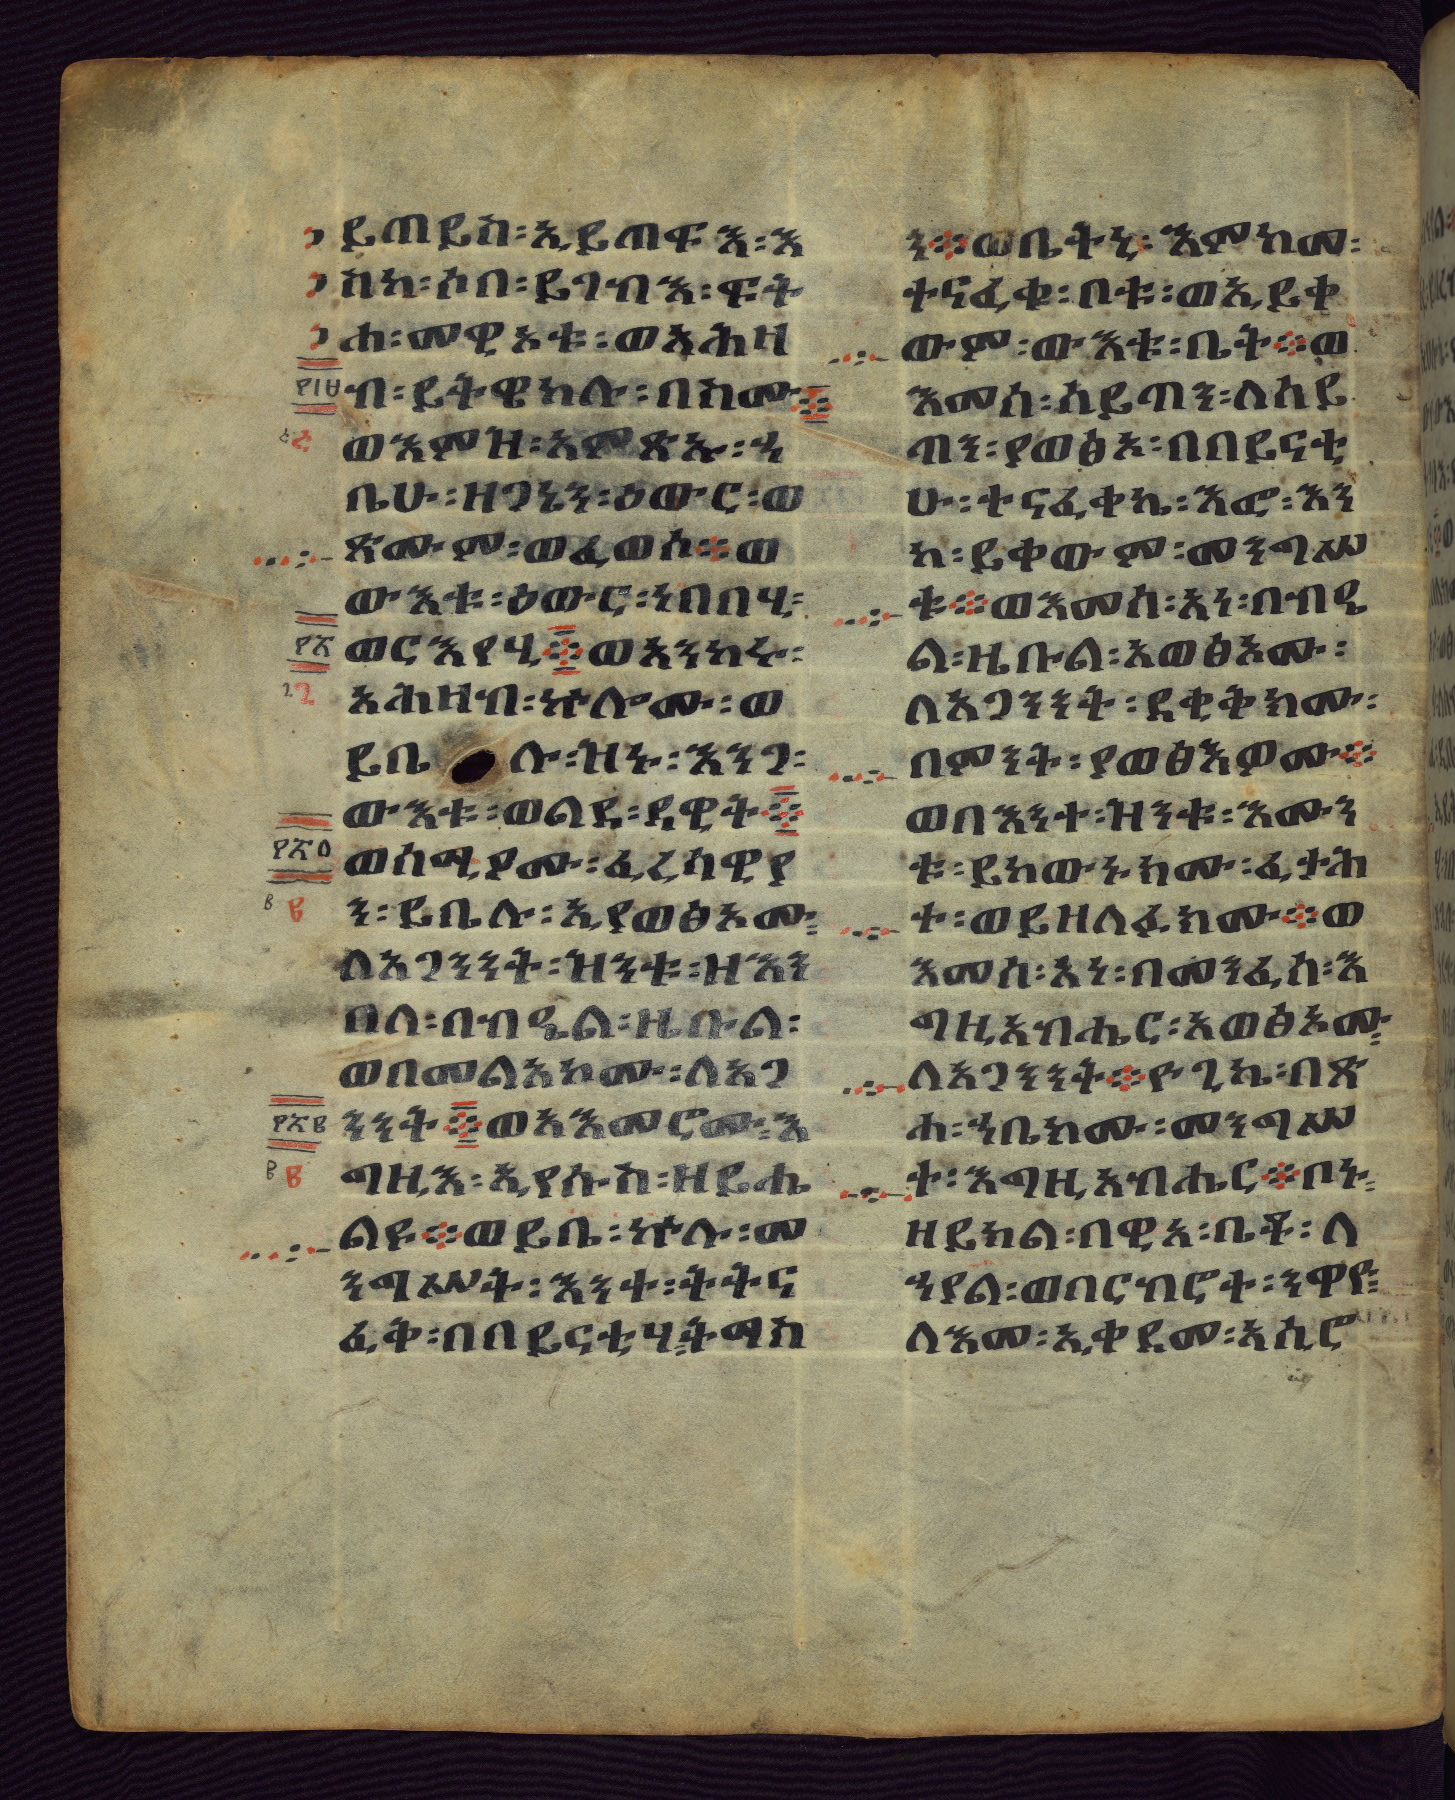 ይጠይስ፡ኢይጠፍእ፡እ
ስከ፡ሶበ፡ይገብእ፡ፍት
ሐ፡መዊኦቱ፡ወአሕዛ
ብ፡ይትዌከሉ፡በስሙ፨
ወእምዝ፡አምጽኡ፡ኀ
ቤሁ፡ዘጋኔን፡ዕውር፡ወ
ጽሙም፡ወፈወሰ፨ወ
ውእቱ፡ዕውር፡ነበበሂ፡
ወርእየሂ፨ወአንከሩ፡
አሕዛብ፡ኵሎሙ፡ወ
ይቤሉ፡ዝኑ፡እንጋ፡
ውእቱ፡ወልደ፡ዳዊት፨
ወሰሚዖሙ፡ፈሪሳዊያ
ን፡ይቤሉ፡ኢያወፅኦሙ፡
ለአጋንንት፡ዝንቱ፡ዘእን
በለ፡በብዔል፡ዜቡል፡
ወበመልአኮሙ፡ለአጋ
ንንት፨ወአእመሮሙ፡እ
ግዚእ፡ኢየሱስ፡ዘይሔ
ልዩ፨ወይቤ፡ኵሉ፡መ
ንግሥት፡እንተ፡ትትና
ፈቅ፡በበይናቲሃ፡ትማስ
ን፨ወቤትኒ፡እምከመ፡
ተናፈቁ፡በቱ፡ወኢይቀ
ውም፡ውእቱ፡ቤት፨ወ
እመሰ፡ሰይጣን፡ለሰይ
ጣን፡ያወፅኦ፡በበይናቲ
ሁ፡ተናፈቀኬ፡እፎ፡እን
ከ፡ይቀውም፡መንግሥ
ቱ፨ወእመሰ፡አነ፡በብዔ
ል፡ዜቡል፡አወፅኦሙ፡
ለአጋንንት፡ደቂቅክሙ፡
በምንት፡ያወፅእዎሙ፨
ወበእንተ፡ዝንቱ፡እሙን
ቱ፡ይከውኑክሙ፡ፈታሕ
ተ፡ወይዘለፉክሙ፨ወ
እመሰ፡አነ፡በመንፈሰ፡እ
ግዚአብሔር፡አወፅኦሙ፡
ለአጋንንት፨ዮጊኬ፡በጽ
ሐ፡ኀቤክሙ፡መንግሥ
ተ፡እግዚአብሔር፨በኑ፡
ዘይክል፡በዊአ፡ቤቶ፡ለ
ኀያል፡ወበርብሮተ፡ንዋየ፡
ለእመ፡ኢቀደመ፡አሲሮ